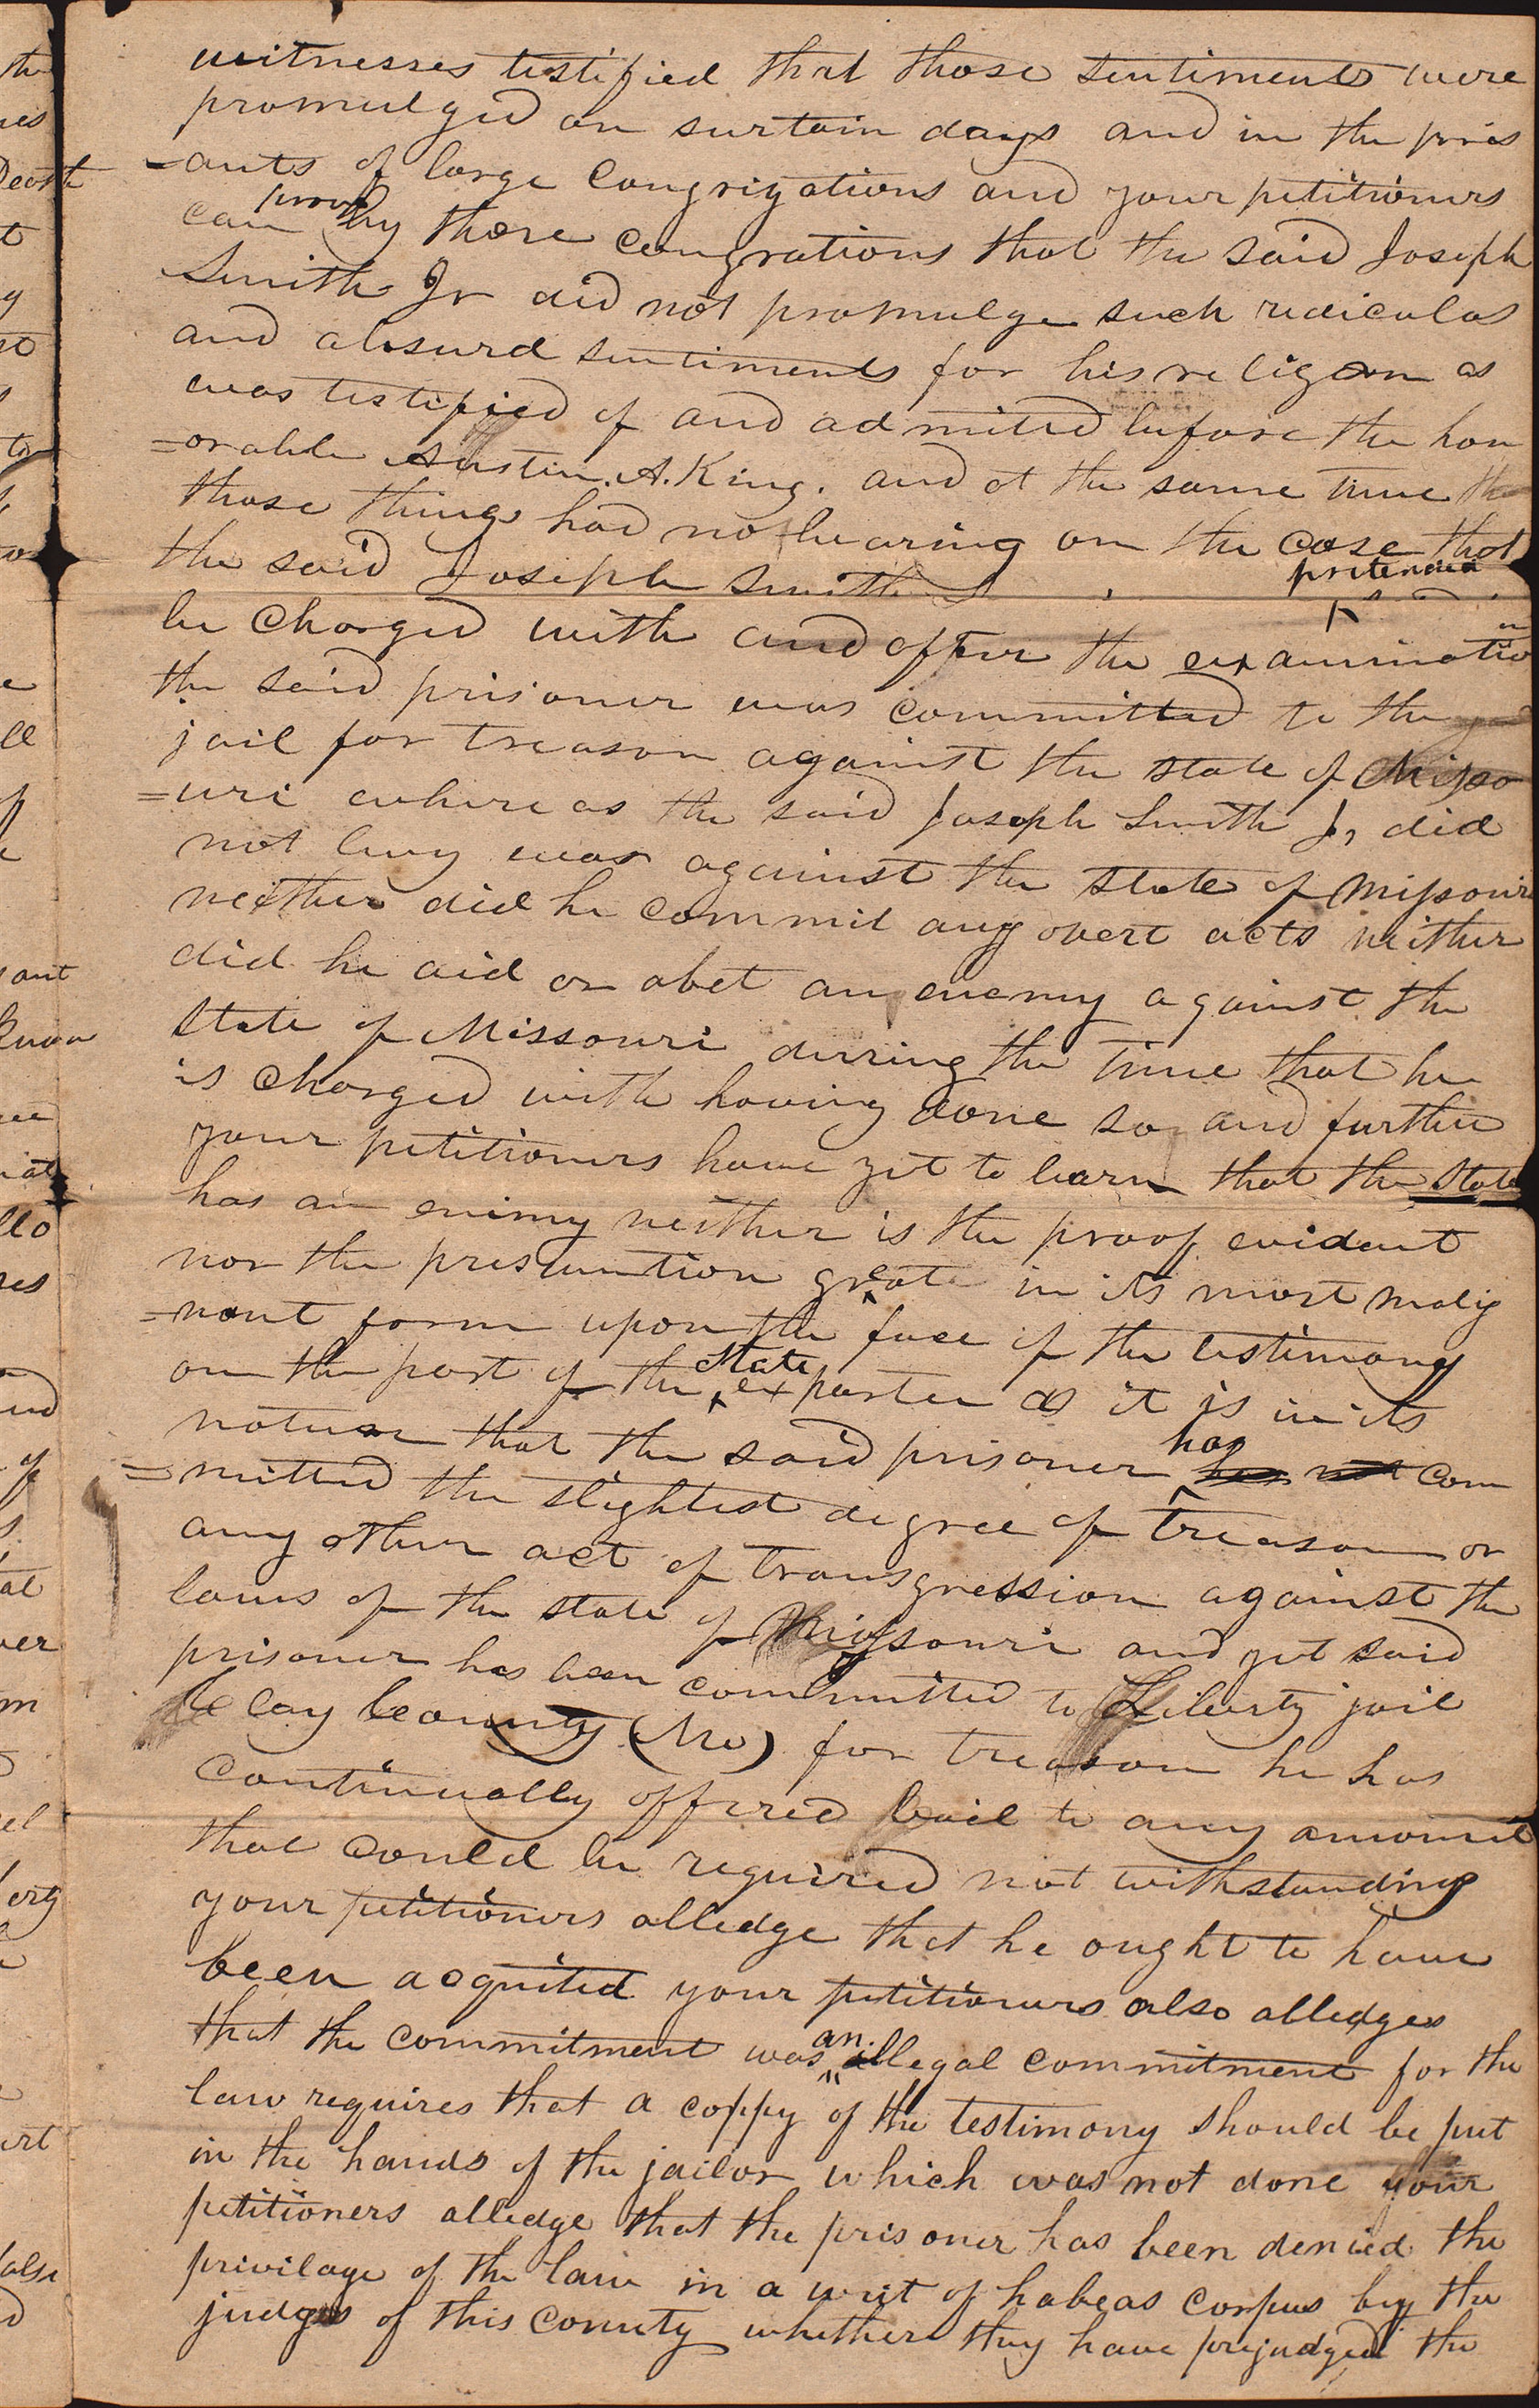 witnesses testified that those sentiments were
promulged on surtain days and in the pres
=ants of large congrigations and your petitioners
can prove by those congrations that the said Joseph
Smith Jr did not promulge such ridiculas
and absurd sentiments for his religeon as
was testified of and admitted before the hon
=orable Austin. A. King. and at the same time
those things had no bearing on the case that
the said Joseph Smith
pretended
be charged with and after the examination
the said prisoner was committed to the
jail for treason against the state of Misso
=uri whereas the said Joseph Smith Jr did
not levy war against the state of Missouri
neither did he commit any overt acts neither
did he aid or abet an enemy against the
state of Missouri durring the time that he
is charged with having done so and further
your petitioners have yet to learn that the State
has an enimy neither is the proof evidant
nor the presumtion great in its most malig
=nant form upon the face of the testimony
on the part of the state exparte as it is in its
nature that the said prisoner has com
=mitted the slightest degree of treason or
any other act of transgression against the
laws of the state of Missouri and yet said
prisoner has been committed to Liberty jail
Clay County (Mo) for treason he has
continually offered bail to any amount
that could be required not withstanding
your petitioners alledge that he ought to have
been acquited your petitioners also alledges
that the commitment was an illegal commitment for the
law requires that a coppy of the testimony should be put
in the hands of the jailor which was not done your
petitioners alledge that the prisoner has been denied the
privilage of the law in a writ of habeas corpus by the
judges of this county whether they have prejudged the